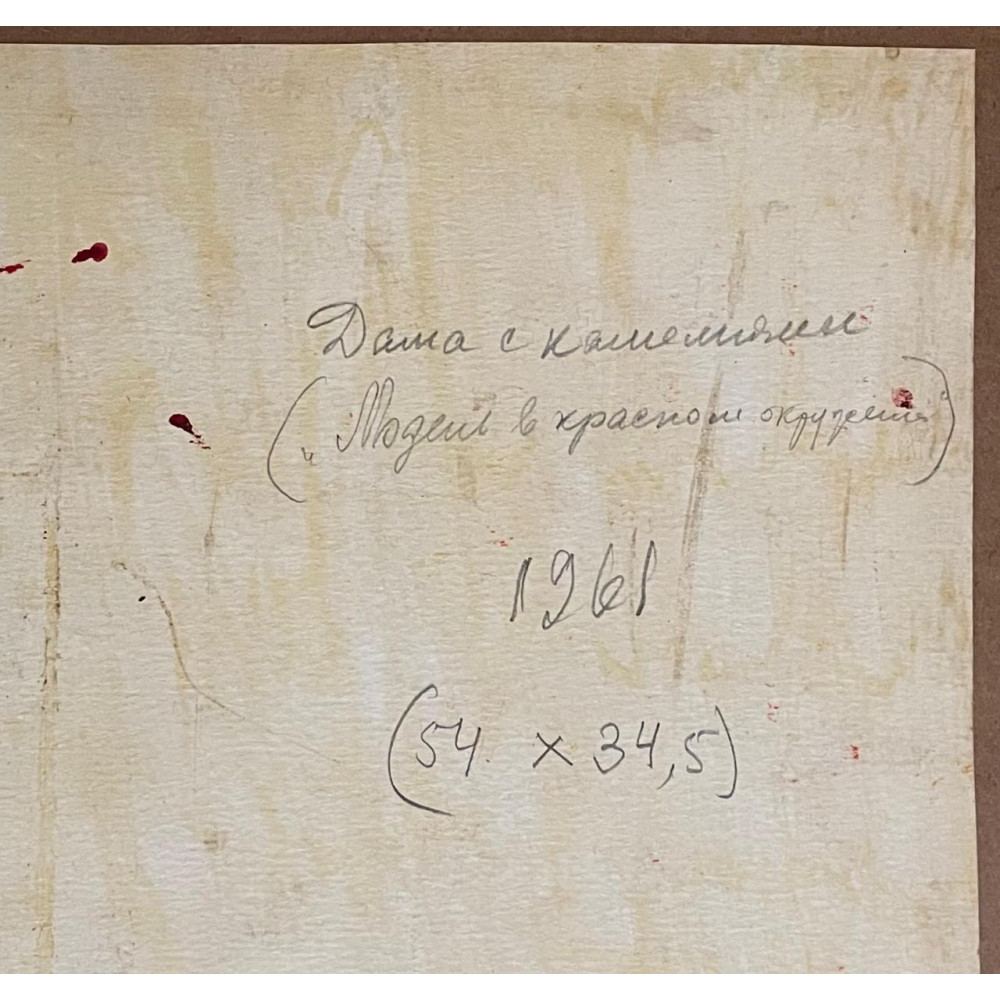 Дама с камелиями
(„Модель в красном окружении")
1961
(54 x 34,5)